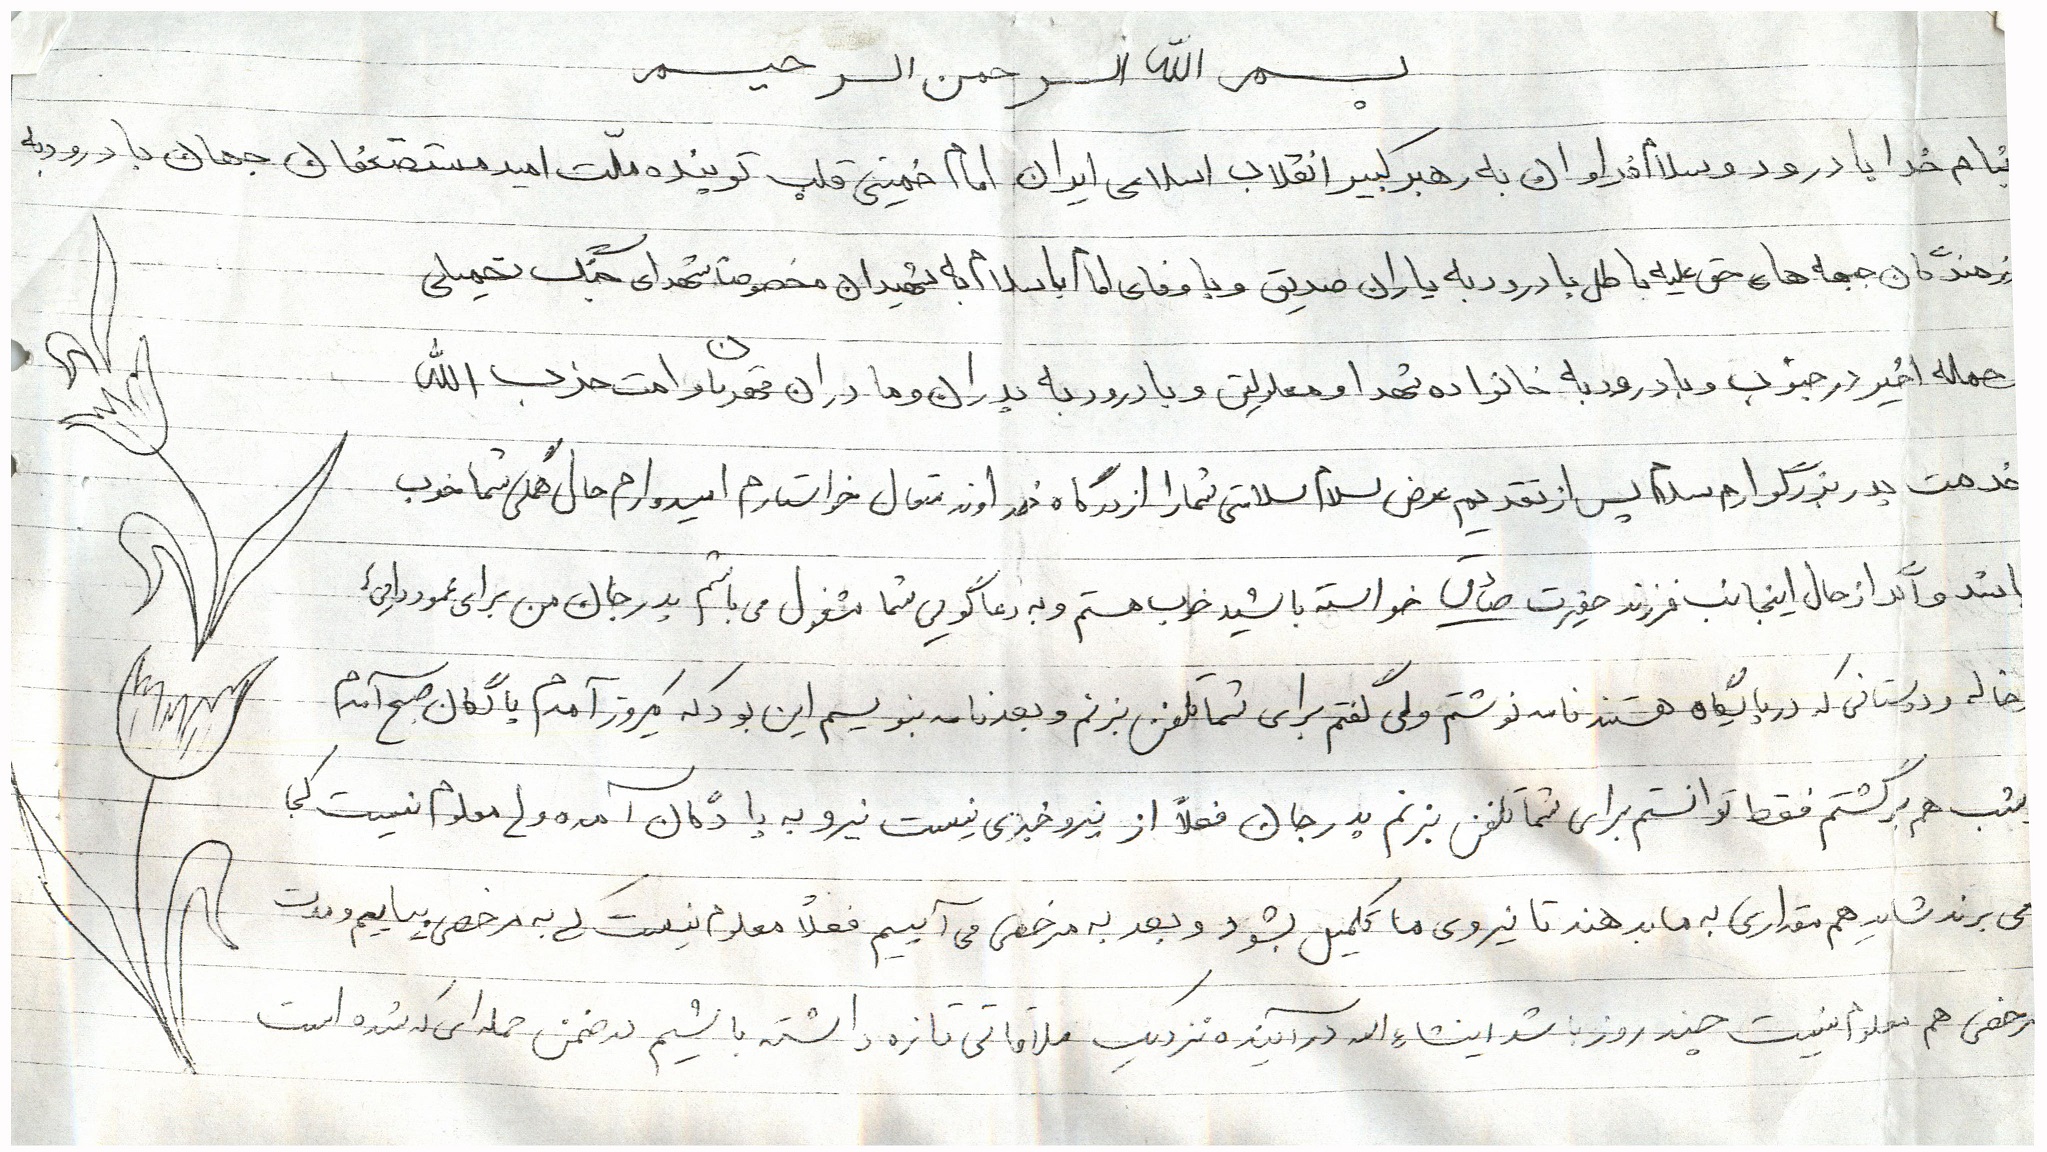 بسم الله الرحمن الرحیم
بنام خدا با درود و سلام فراوان به رهبر کبیر انقلاب اسلامی ایران امام خمینی قلب توپنده ملّت امید مستضعفان جهان با درود به
رزمندگان جبهه های حق علیه باطل با درود به یاران صدیق و با وفای امام با سلام به شهیدان مخصوصا شهدای جنگ تحمیلی
حمله اخیر در جنوب و با درود به خانواده شهدا و معلولین و با درود به پدران و مادران قهرمان و امت حذب الله
خدمت پدر بزرگوارم سلام پس از تقدیم عرض سلام سلامتی شما را از درگاه خداوند متعال خواستارم امیدوارم حال همگی شما خوب
باشد و اگر از حال اینجانب فرزند حقیرت خواسته باشید خوب هستم و به دعاگویی شما مشغول می باشم پدر جان من برای عمو و دایی
و خاله و دوستانی که در پایگاه هستند نامه نوشتم ولی گفتم برای شما تلفن بزنم و بعد نامه بنویسم این بود که یکروز آمدم پادگان صبح آمدم
شب هم برگشتم فقط توانستم برای شما تلفن بزنم پدر جان فعلاً از نیرو خبری نیست نیرو به پادگان آمده ولی معلوم نیست کجا
می برند شاید هم مقداری به ما بدهند تا نیروی ما تکمیل بشود و بعد به مرخصی می آییم فعلاً معلوم نیست کی به مرخصی بیاییم و مدت
مرخصی هم معلوم نیست چند روز باشد اینشاءاله در آینده نزدیک ملاقاتی تازه داشته باشیم در ضمن حمله ای که شده است